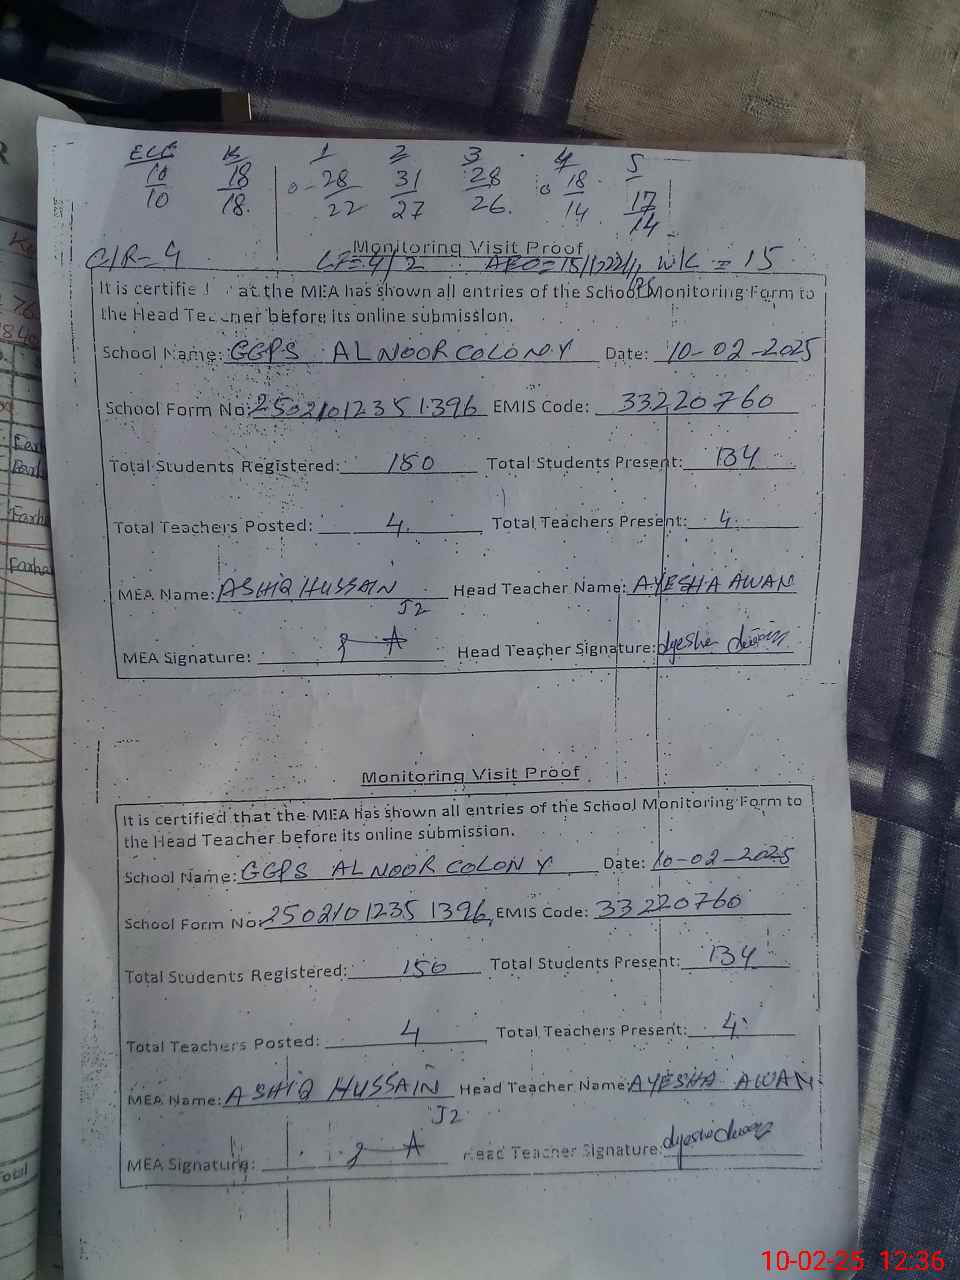 ECE K 1 2 3 4 5
10/10 18/18 28/22 31/27 28/26 18/14 17/14
Monitoring Visit Proof
C/R=4 WK = 15
It is certified at the MEA has shown all entries of the School Monitoring Form to
the Head Teacher before its online submission.
School Name: GGPS ALNOOR COLONY Date: 10-02-2025
School Form No: 25021012351396 EMIS Code: 33220760
Total Students Registered: 150 Total Students Present: 134
Total Teachers Posted: 4 Total Teachers Present: 4
MEA Name: ASHIQ HUSSAIN Head Teacher Name: AYESHA AWAN
J2
MEA Signature: Head Teacher Signature: Ayesha Awan
Monitoring Visit Proof
It is certified that the MEA has shown all entries of the School Monitoring Form to
the Head Teacher before its online submission.
School Name: GGPS ALNOOR COLONY Date: 10-02-2025
School Form No: 25021012351396 EMIS Code: 33220760
Total Students Registered: 150 Total Students Present: 134
Total Teachers Posted: 4 Total Teachers Present: 4
MEA Name: ASHIQ HUSSAIN Head Teacher Name: AYESHA AWAN
J2
MEA Signature: Head Teacher Signature: Ayesha Awan
10-02-25 12:36